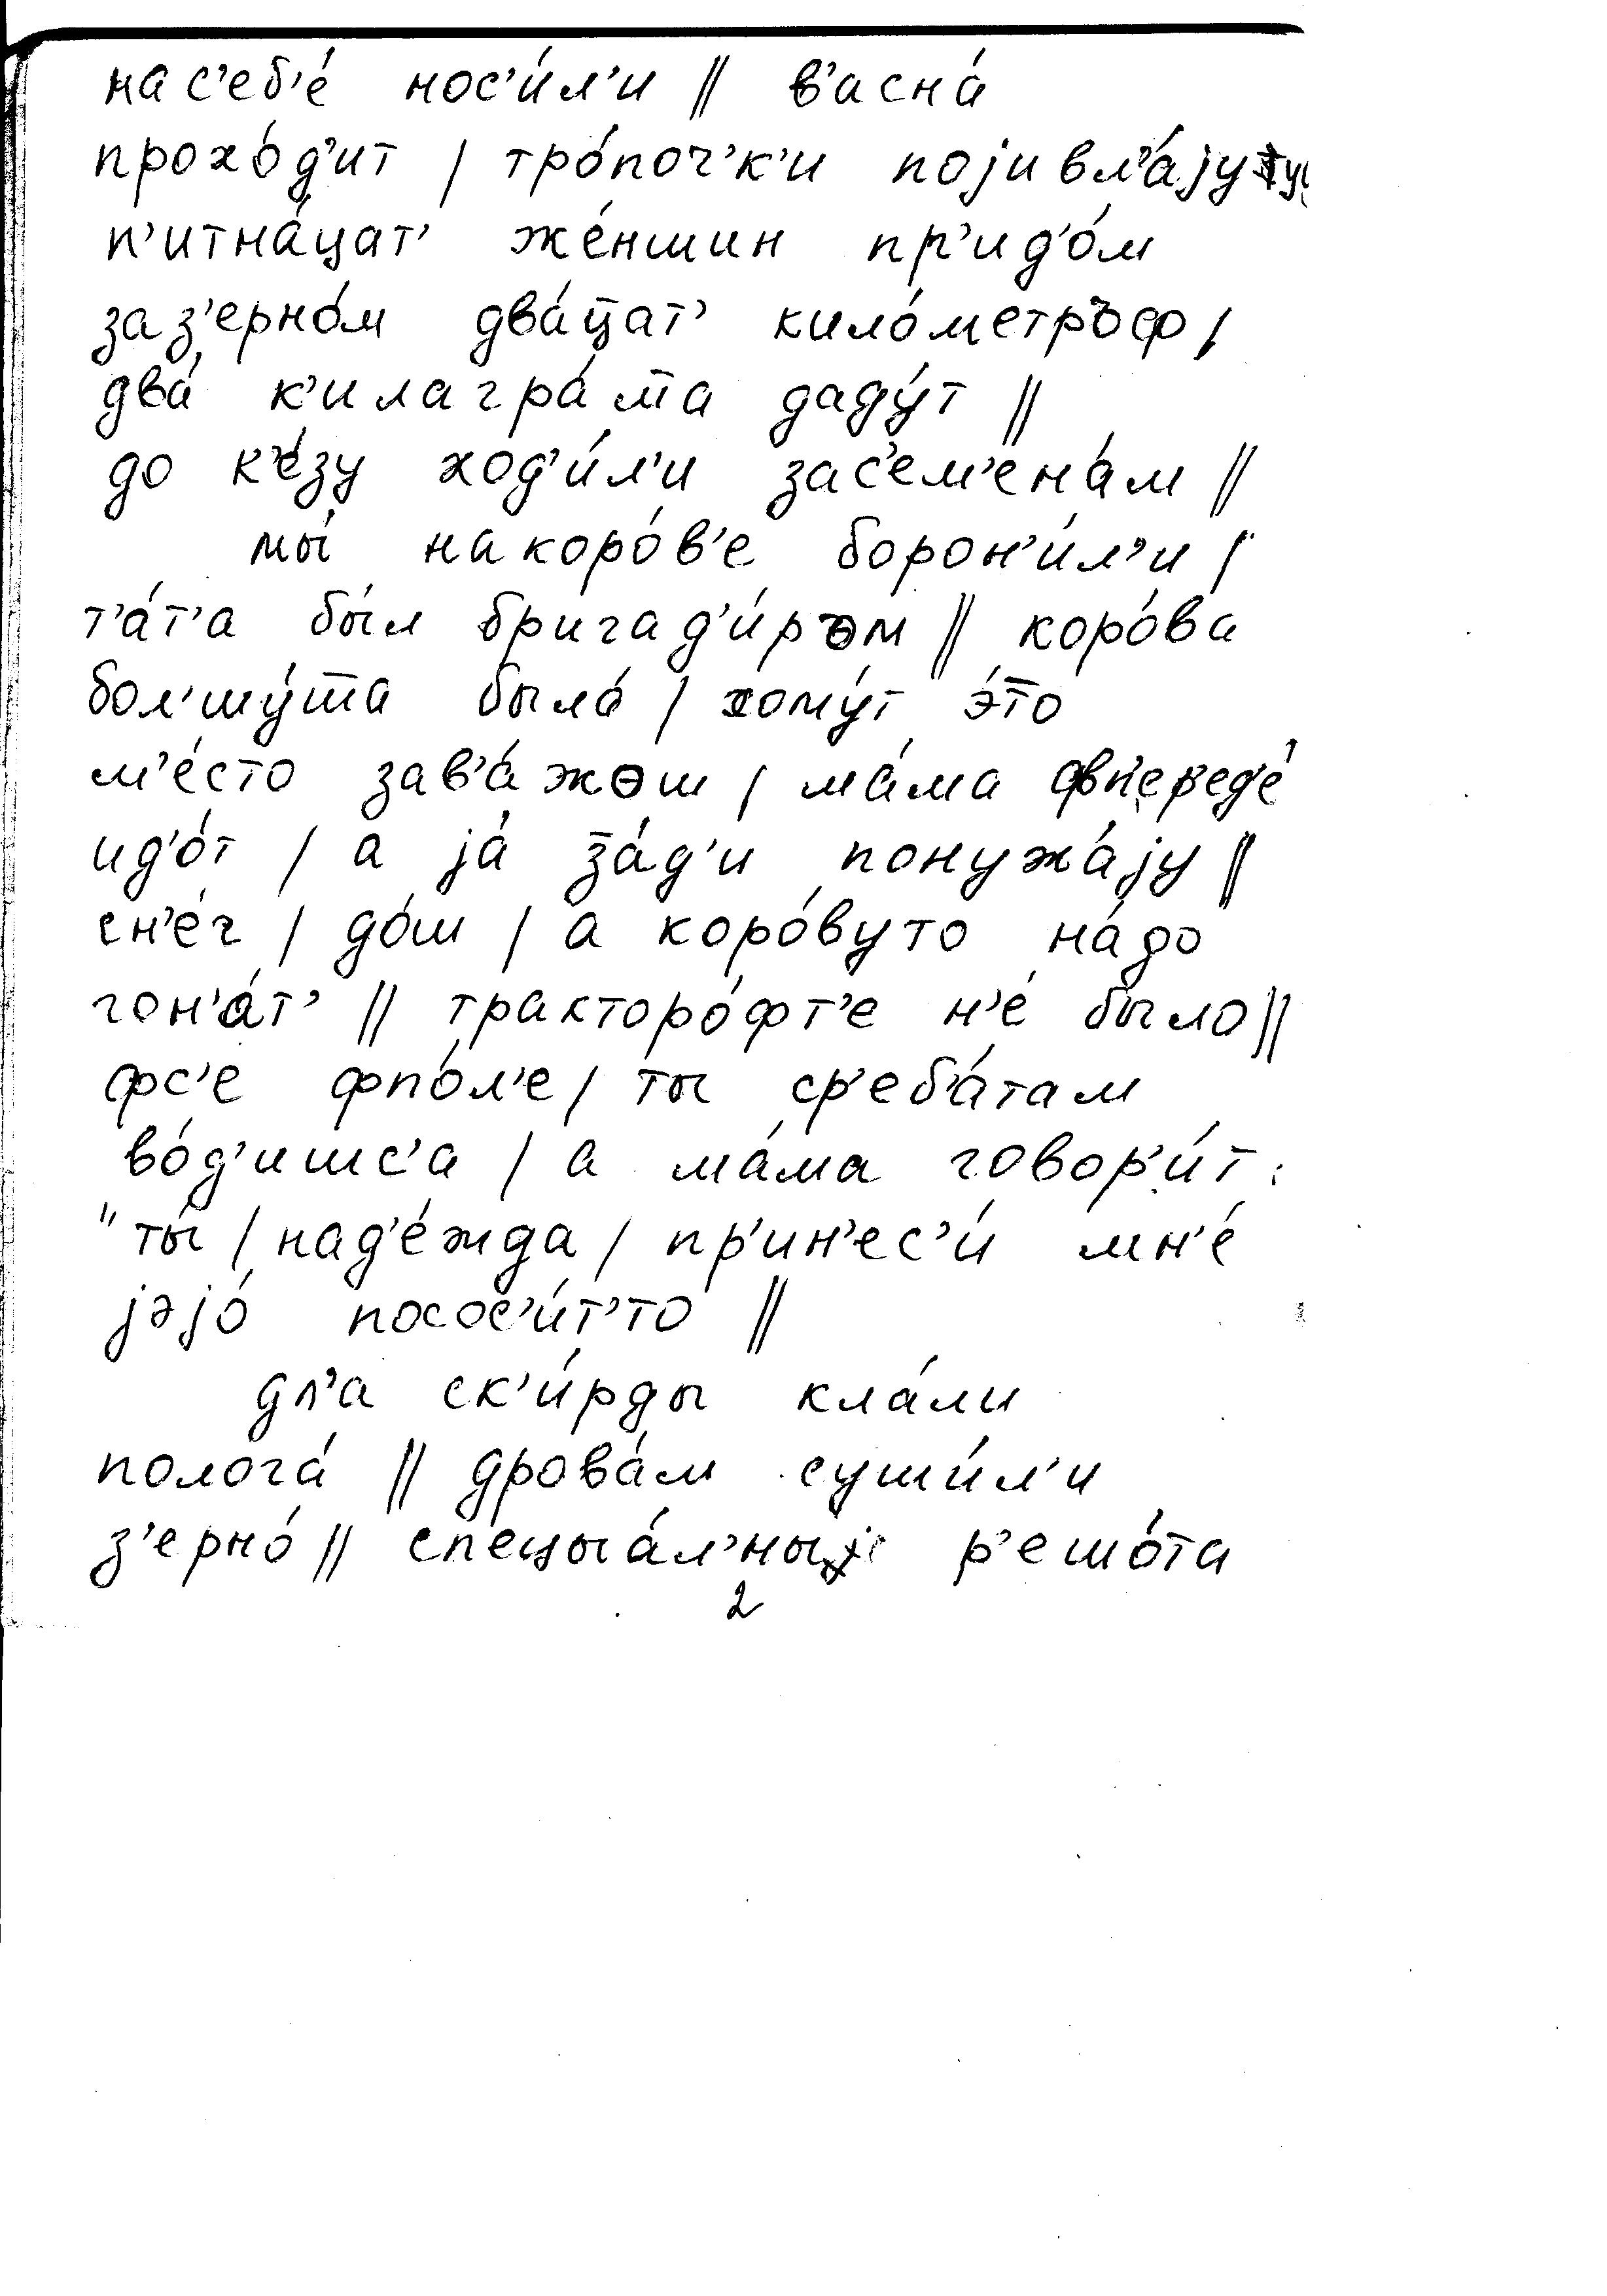 нас'еб'е́ нос'и́л'и || в'асна́
прохо́д'ит / тро́поч'к'и појивл'а́јуту
п'итна́цат' же́ншин пр'ид'о́м
заз'ерно́м два́цат' кило́метръф /
два́ к'илагра́ма даду́т ||
до к'е́зу ход'и́л'и зас'ем'ена́м ||
мы́ накоро́в'е борон'и́л'и /
т'а́т'а бы́л бригад'и́ръм || коро́ва
бол'шу́ша была́ / хому́т э́то
м'е́сто зав'а́жош / ма́ма фп'ер'ед'е́
ид'о́т / а ја́ за́д'и понужа́ју ||
сн'е́г / до́ш / а коро́вуто на́до
гон'а́т' || тракторо́фт'е н'е́ было ||
фс'е фпо́л'е / ты ср'еб'а́там
во́д'ишс'а / а ма́ма говор'и́т :
"ты́ / над'е́жда / пр'ин'ес'и́ мн'е́
јэјо́ посос'и́т'то ||
дл'а ск'и́рды кла́ли
полога́ || дрова́м суши́л'и
з'ерно́ || спецыа́л'ныје р'ешо́та
2